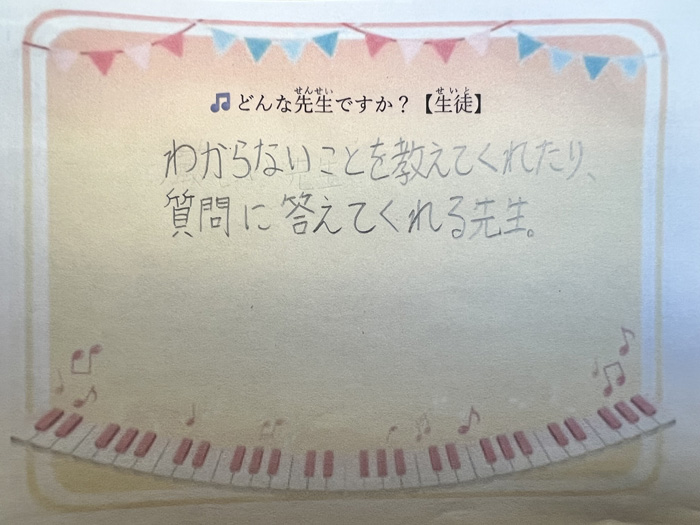 🎵どんな先生ですか？【生徒】
わからないことを教えてくれたり、
質問に答えてくれる先生。